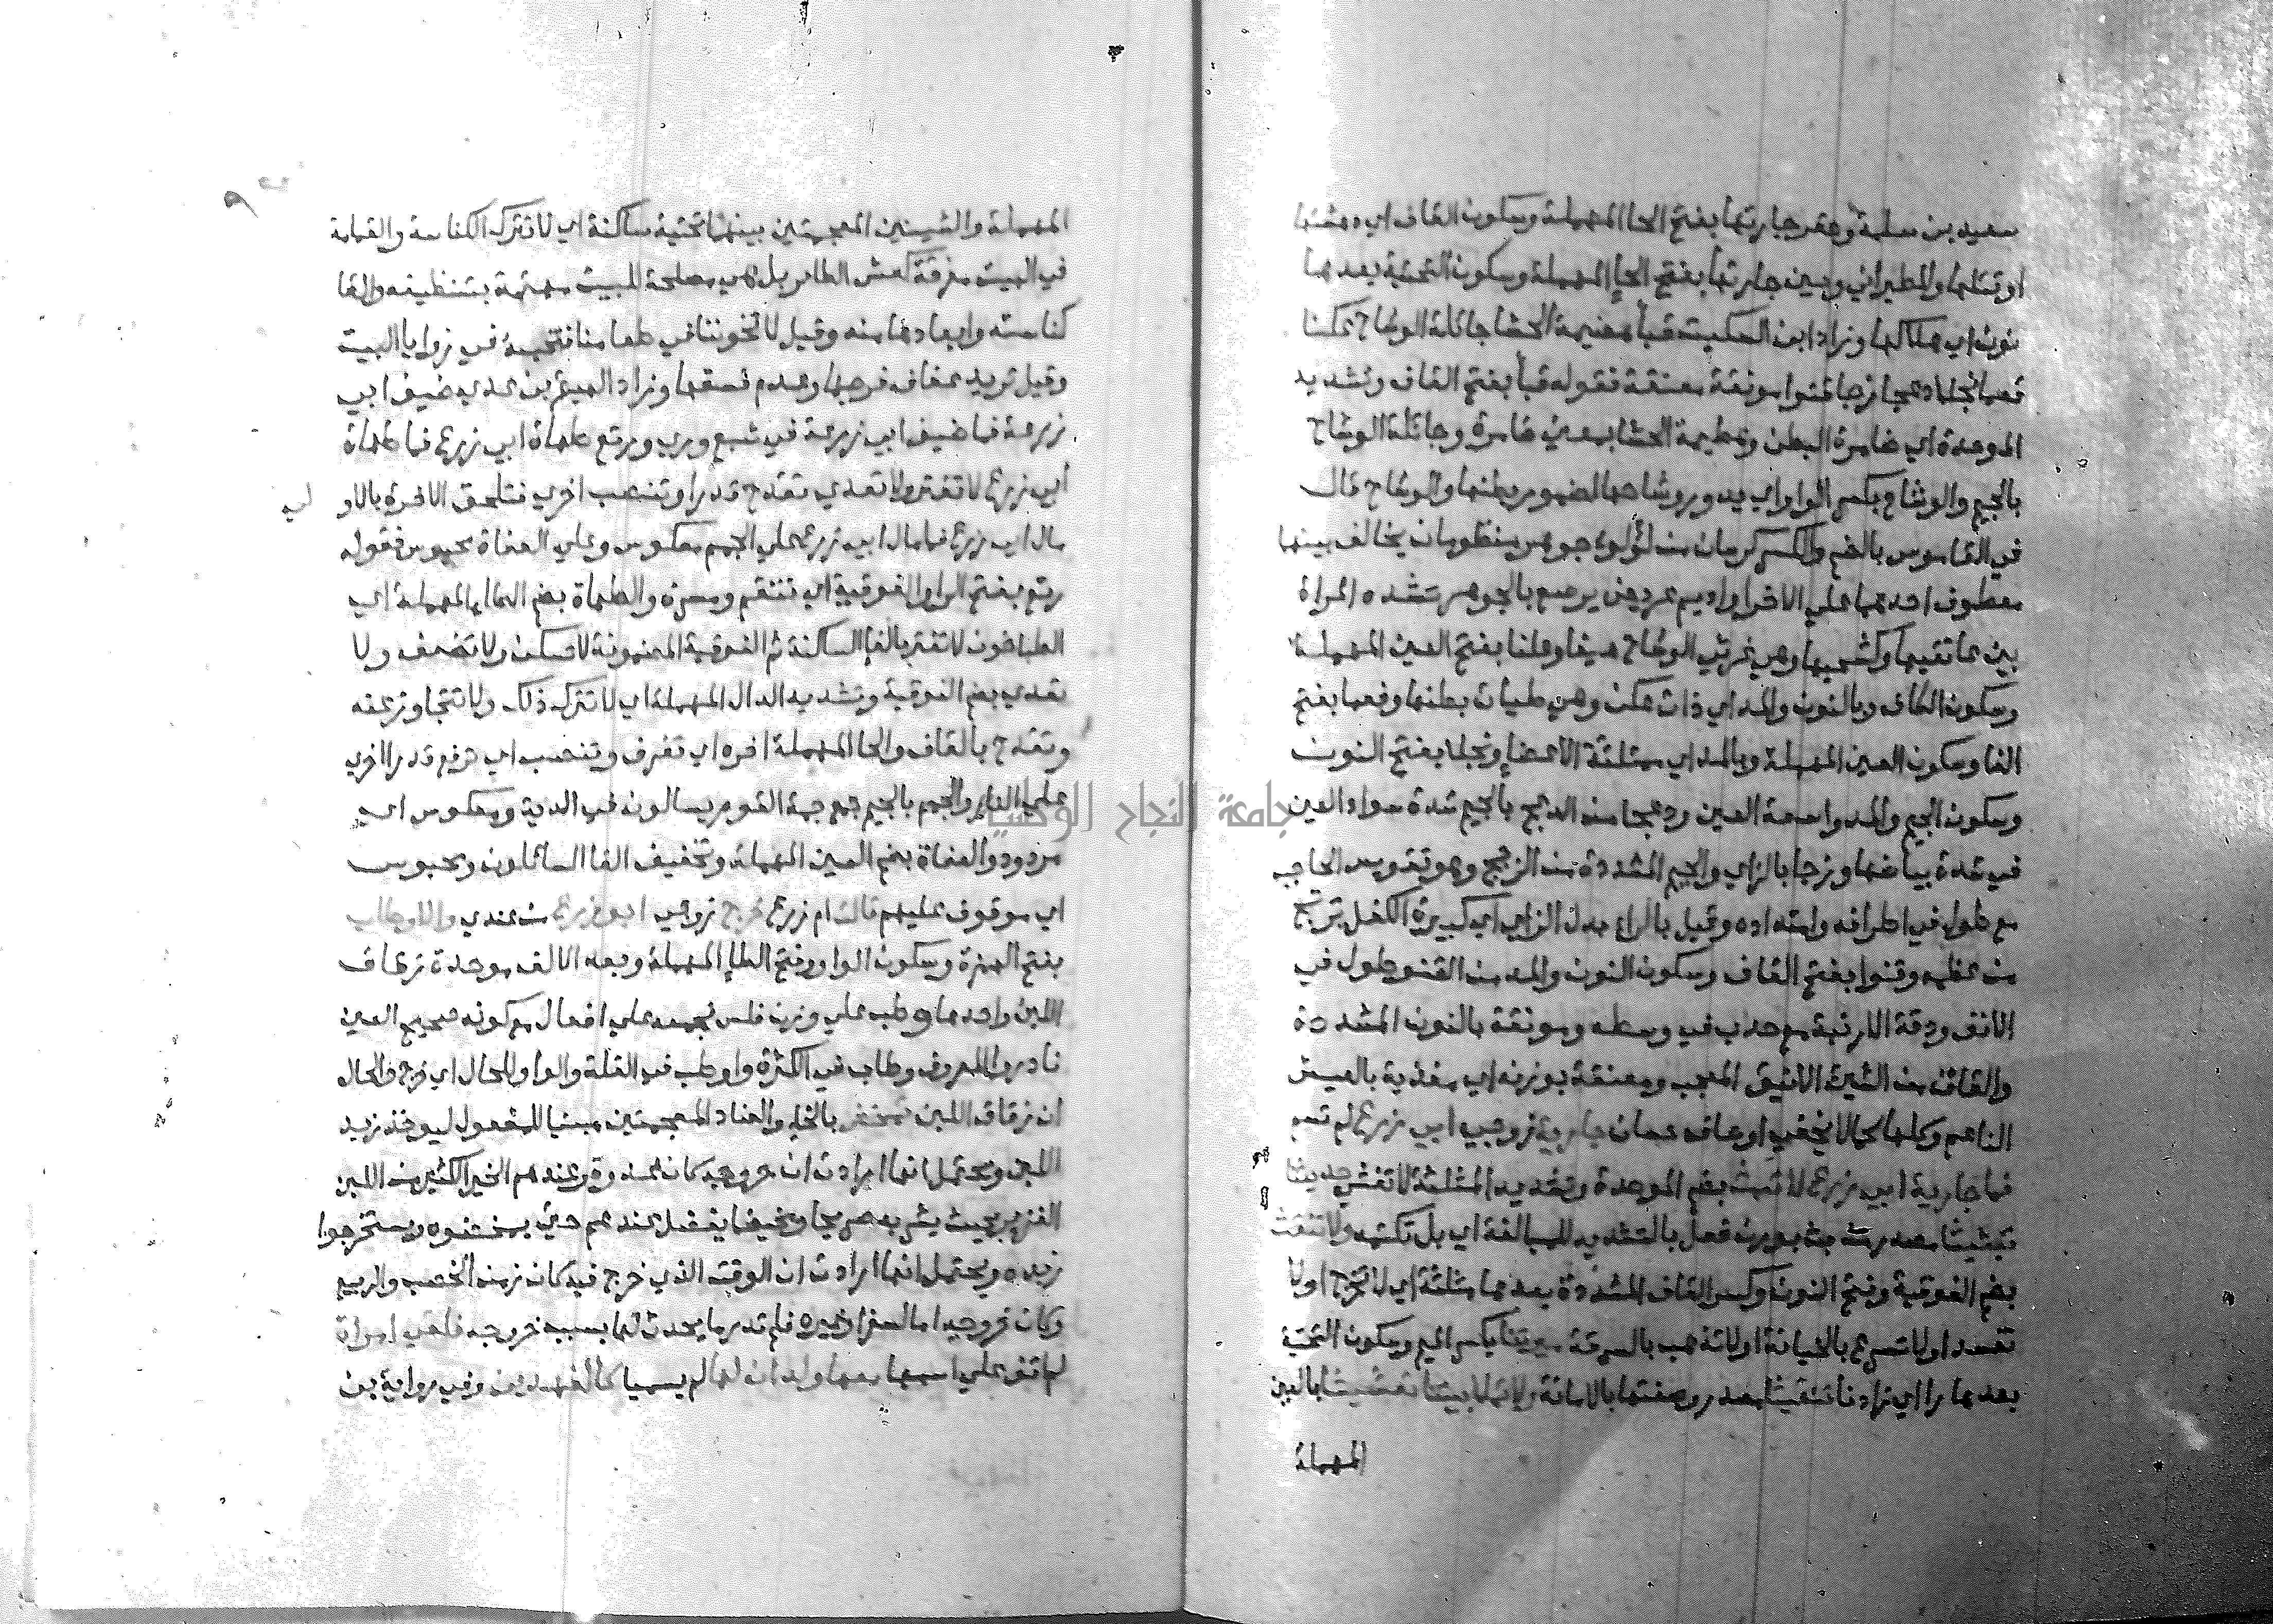 سعيد بن سلمة وعقر جارتها بفتح الحا المهملة وسكون القاف اي دهشتها
او قتلها وللطبراني وحين جارتها بفتح الحا المهملة وسكون التحتية بعدها
نون اي هلاكها وزاد ابن السكيت قبا هضيمة الحشا جائلة الوشاح عكنا
فعما نجلا دعجا زجا قنوا مونقة معنقة فقوله قبا بفتح القاف وتشديد
الموحدة اي ضامرة البطن وهضيمة الحشا بمعني ضامرة وجائلة الوشاح
بالجيم والوشاح بكسر الواو اي يدور وشاحها لضمور بطنها والوشاح قال
في القاموس بالضم والكسر كرسان من لؤلؤ وجوهر منظومان يخالف بينهما
معطوف احدهما علي الاخر واديم عريض يرصع بالجوهر تشده المراة
بين عاتقيها وكشحيها وهي غرثي الوشاح هيفا وعكنا بفتح العين المهملة
وسكون الكاف وبالنون والمد اي ذات عكن وهي طيات بطنها وفعما بفتح
الفا وسكون العين المهملة وبالمد اي ممتلئة الاعضا ونجلا بفتح النون
وسكون الجيم والمد واسعة العين ودعجا من الدعج بالجيم شدة سواد العين
في شدة بياضها وزجا بالزاي والجيم المشددة من الزجج وهو تقويس الحاجب
مع طول في اطرافه وامتداده وقيل بالراء بدل الزاي اي كبيرة الكفل ترتج
من عظمه وقنوا بفتح القاف وسكون النون والمد من القنو طول في
الانف ودقة الارنبة مع حدب في وسطه ومونقة بالنون المشددة
والقاف من الشيئ الانيق المعجب ومعنقة بوزنه اي مغذية بالعيش
الناعم وكلها كما لا يخفي اوصاف حسان جارية زوجي ابي زرع لم تسم
فما جارية ابي زرع لا تبث بضم الموحدة وتشديد المثلثة لا تفشي حديثنا
تبثيثا مصدر بث بوزن فعل بالتشديد للمبالغة اي بل تكتمه ولا تنقث
بضم الفوقية وفتح النون وكسر القاف المشددة بعدها مثلثة اي لا تخرج او لا
تفسد او لا تسرع بالخيانة او لا تذهب بالسرقة ميرتنا بكسر الميم وسكون التحتية
بعدها را اي زادنا تنقيثا مصدر وصفتها بالامانة ولا تملا بيتنا تعشيشا بالعين
المهملة
المهملة والشينين المعجمتين بينهما تحتية ساكنة اي لا تترك الكناسة والقمامة
في البيت مفرقة كعش الطائر بل هي مصلحة للبيت مهتمة بتنظيفه والقا
كناسته وابعادها منه وقيل لا تخوننا في طعامنا فتخبيه في زوايا البيت
وقيل تريد عفاف فرجها وعدم فسقها وزاد الهيثم بن عدي ضيف ابي
زرع فما ضيف ابي زرع في شبع وري ورتع طهاة ابي زرع فما طهاة
ابي زرع لا تفتر ولا تعدي تقدح قدرا وتنصب اخري فتلحق الاخرة بالاولي
مال ابي زرع فما مال ابي زرع علي الجمم معكوس وعلي العفاة محبوس فقوله
رتع بفتح الرا والفوقية اي تنعم ومسرة والطهاة بضم الطاء المهملة اي
الطباخون لا تفتر بالفا الساكنة ثم الفوقية المضمونة لا تسكن ولا تضعف ولا
تعدي بضم الفوقية وتشديد الدال المهملة اي لا تترك ذلك ولا تتجاوز عنه
وتقدح بالقاف والحا المهملة اخره اي تغرف وتنصب اي ترفع قدرا اخري
علي النار والجمم بالجيم جمع جمة القوم يسالون في الدية ومعكوس اي
مردود والعفاة بضم العين المهملة وتخفيف الفا السائلون ومحبوس
اي موقوف عليهم قالت ام زرع خرج زوجي ابو زرع من عندي والاوطاب
بفتح الهمزة وسكون الواو وفتح الطا المهملة وبعد الالف موحدة زقاق
اللبن واحدها وطب علي وزن فلس فجمعه علي افعال مع كونه صحيح العين
نادر والمعروف وطاب في الكثرة واوطب في القلة والواو للحال اي خرج والحال
ان زقاق اللبن تمخض بالخاء والضاد المعجمتين مبنيا للمفعول ليوخذ زبد
اللبن ويحتمل انها ارادت ان خروجه كان غدوة وعندهم الخير الكثير من اللبن
الغزير بحيث يشربه صريحا ومخيضا يفضل عندهم حتي يمخضوه ويستخرجوا
زبده ويحتمل انها ارادت ان الوقت الذي خرج فيه كان زمن الخصب والربيع
وكان خروجه اما لسفر او غيره فلم تدر ما يحدث لها بسبب خروجه فلقي امراة
لم اقف علي اسمها معها ولدان لها لم يسميا كالفهدين وفي رواية بن